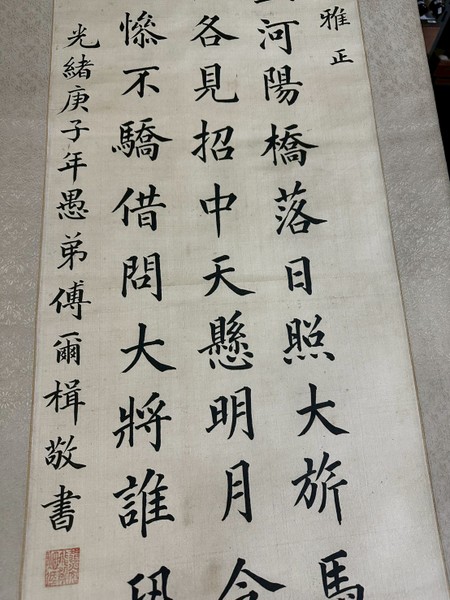 雅正
河陽橋落日照大旂馬
各見招中天懸明月令
慘不驕借問大將誰恐
光緒庚子年愚弟傅爾楫敬書